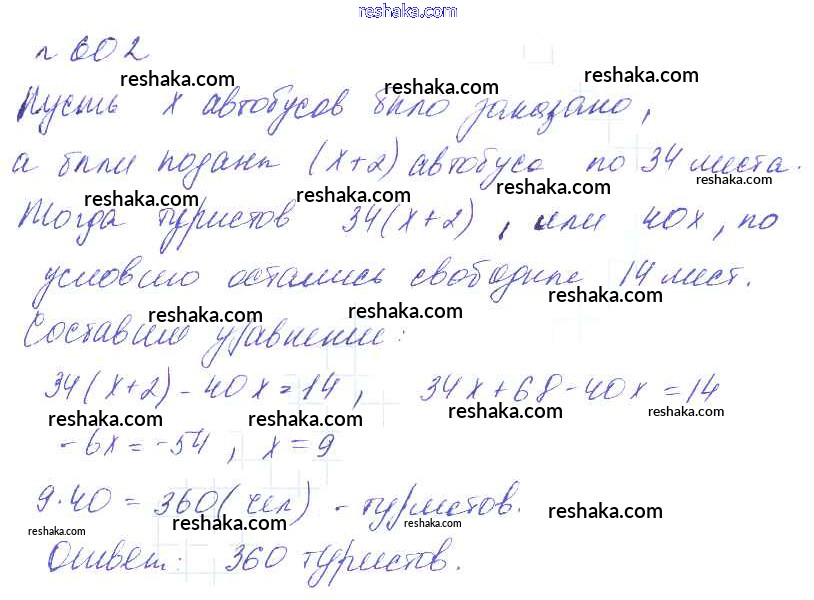 reshaka.com
№ 602
reshaka.com reshaka.com reshaka.com
Пусть х автобусов было заказано,
а были поданы (х+2) автобуса по 34 места.
reshaka.com reshaka.com reshaka.com reshaka.com
Тогда туристов 34(х+2), или 40х, по
условию остались свободные 14 мест.
reshaka.com reshaka.com reshaka.com
Составим уравнение:
34(х+2)-40х=14, 34х+68-40х=14
reshaka.com reshaka.com reshaka.com reshaka.com
-6х=-54, х=9
9·40=360(чел) - туристов.
reshaka.com reshaka.com reshaka.com reshaka.com
Ответ: 360 туристов.